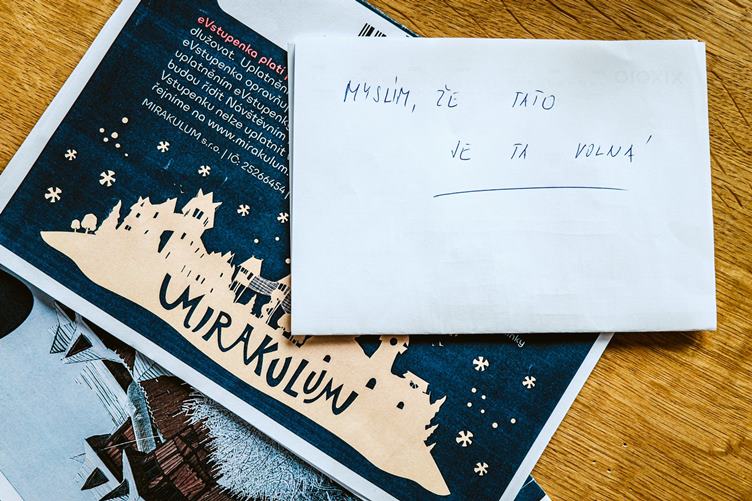 eVstupenka platí
dlužovat. Uplatněn
eVstupenka opravňu
uplatněním eVstupenk
budou řídit Návštěvním
Vstupenku nelze uplatnit
řejníme na www.mirakulum.
MIRAKULUM s.r.o. | IČ: 25266454 |
MIRAKULUM
MYSLÍM, ŽE TATO
JE TA VOLNÁ